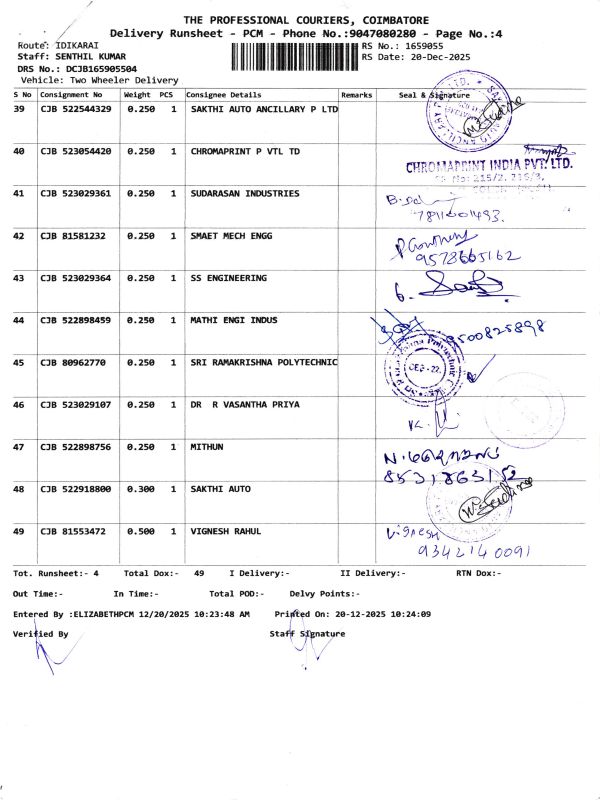 THE PROFESSIONAL COURIERS, COIMBATORE
Delivery Runsheet - PCM - Phone No.:9047080280 - Page No.:4
Route: IDIKARAI RS No.: 1659055
Staff: SENTHIL KUMAR RS Date: 20-Dec-2025
DRS No.: DCJB165905504
Vehicle: Two Wheeler Delivery
S No Consignment No Weight PCS Consignee Details Remarks Seal & Signature
39 CJB 522544329 0.250 1 SAKTHI AUTO ANCILLARY P LTD
40 CJB 523054420 0.250 1 CHROMAPRINT P VTL TD
CHROMAPRINT INDIA PVT. LTD.
41 CJB 523029361 0.250 1 SUDARASAN INDUSTRIES
7811601493.
42 CJB 81581232 0.250 1 SMAET MECH ENGG
9578665162
43 CJB 523029364 0.250 1 SS ENGINEERING
44 CJB 522898459 0.250 1 MATHI ENGI INDUS
9500825898
45 CJB 80962770 0.250 1 SRI RAMAKRISHNA POLYTECHNIC
46 CJB 523029107 0.250 1 DR R VASANTHA PRIYA
47 CJB 522898756 0.250 1 MITHUN
8531863152
48 CJB 522918800 0.300 1 SAKTHI AUTO
49 CJB 81553472 0.500 1 VIGNESH RAHUL Vignesh
9342140091
Tot. Runsheet:- 4 Total Dox:- 49 I Delivery:- II Delivery:- RTN Dox:-
Out Time:- In Time:- Total POD:- Delvy Points:-
Entered By :ELIZABETHPCM 12/20/2025 10:23:48 AM Printed On: 20-12-2025 10:24:09
Verified By Staff Signature